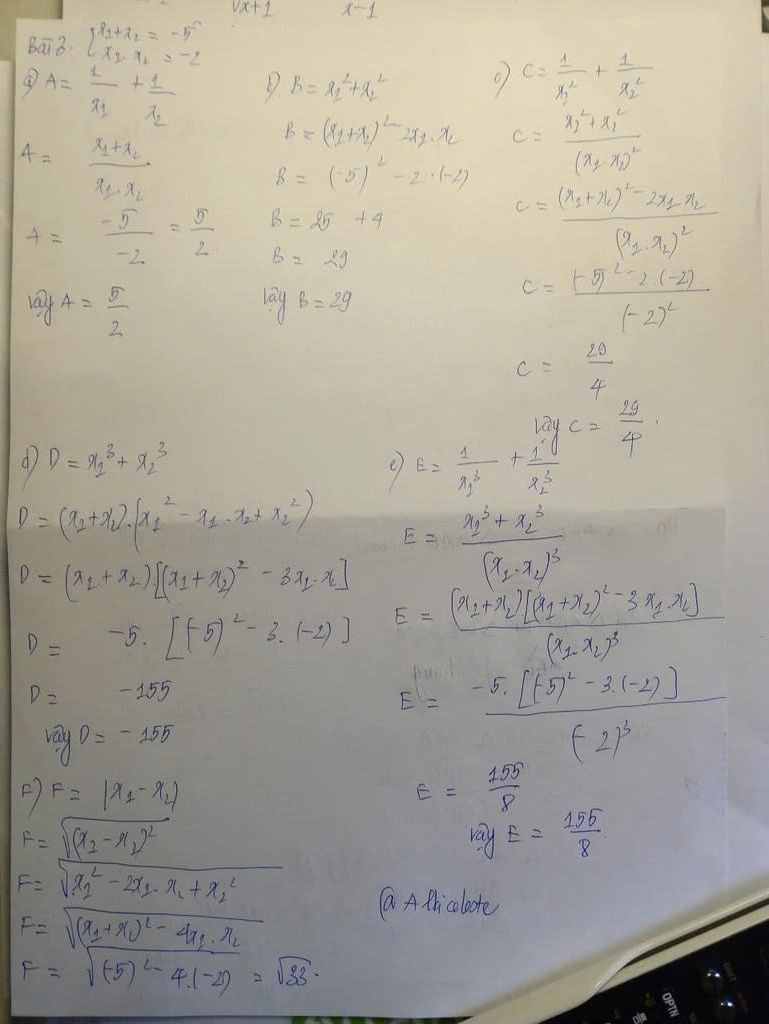 √x+1 x-1
Bài 3: {x1+x2 = -5
x1.x2 = -2
a) A= 1/x1 + 1/x2
A = (x1+x2)/(x1.x2)
A = -5/-2 = 5/2.
Vậy A = 5/2
b) B = x1²+x2²
B = (x1+x2)² - 2x1.x2
B = (-5)² - 2.(-2)
B = 25 + 4
B = 29
Vậy B = 29
c) C = 1/x1² + 1/x2²
C = (x1²+x2²)/(x1.x2)²
C = ((x1+x2)² - 2x1.x2)/(x1.x2)²
C = ((-5)² - 2.(-2))/(-2)²
C = 29/4
Vậy C = 29/4.
d) D = x1³ + x2³
D = (x1+x2).(x1² - x1.x2 + x2²)
D = (x1+x2).[(x1+x2)² - 3x1.x2]
D = -5.[(-5)² - 3.(-2)]
D = -155
Vậy D = -155
e) E = 1/x1³ + 1/x2³
E = (x1³ + x2³)/(x1.x2)³
E = (x1+x2)[(x1+x2)² - 3x1.x2]/(x1.x2)³
E = -5.[(-5)² - 3.(-2)]/(-2)³
E = 155/8
Vậy E = 155/8.
F) F = |x1-x2|
F = √(x1-x2)²
F = √x1² - 2x1.x2 + x2²
F = √(x1+x2)² - 4x1.x2
F = √(-5)² - 4.(-2) = √33.
OPTN